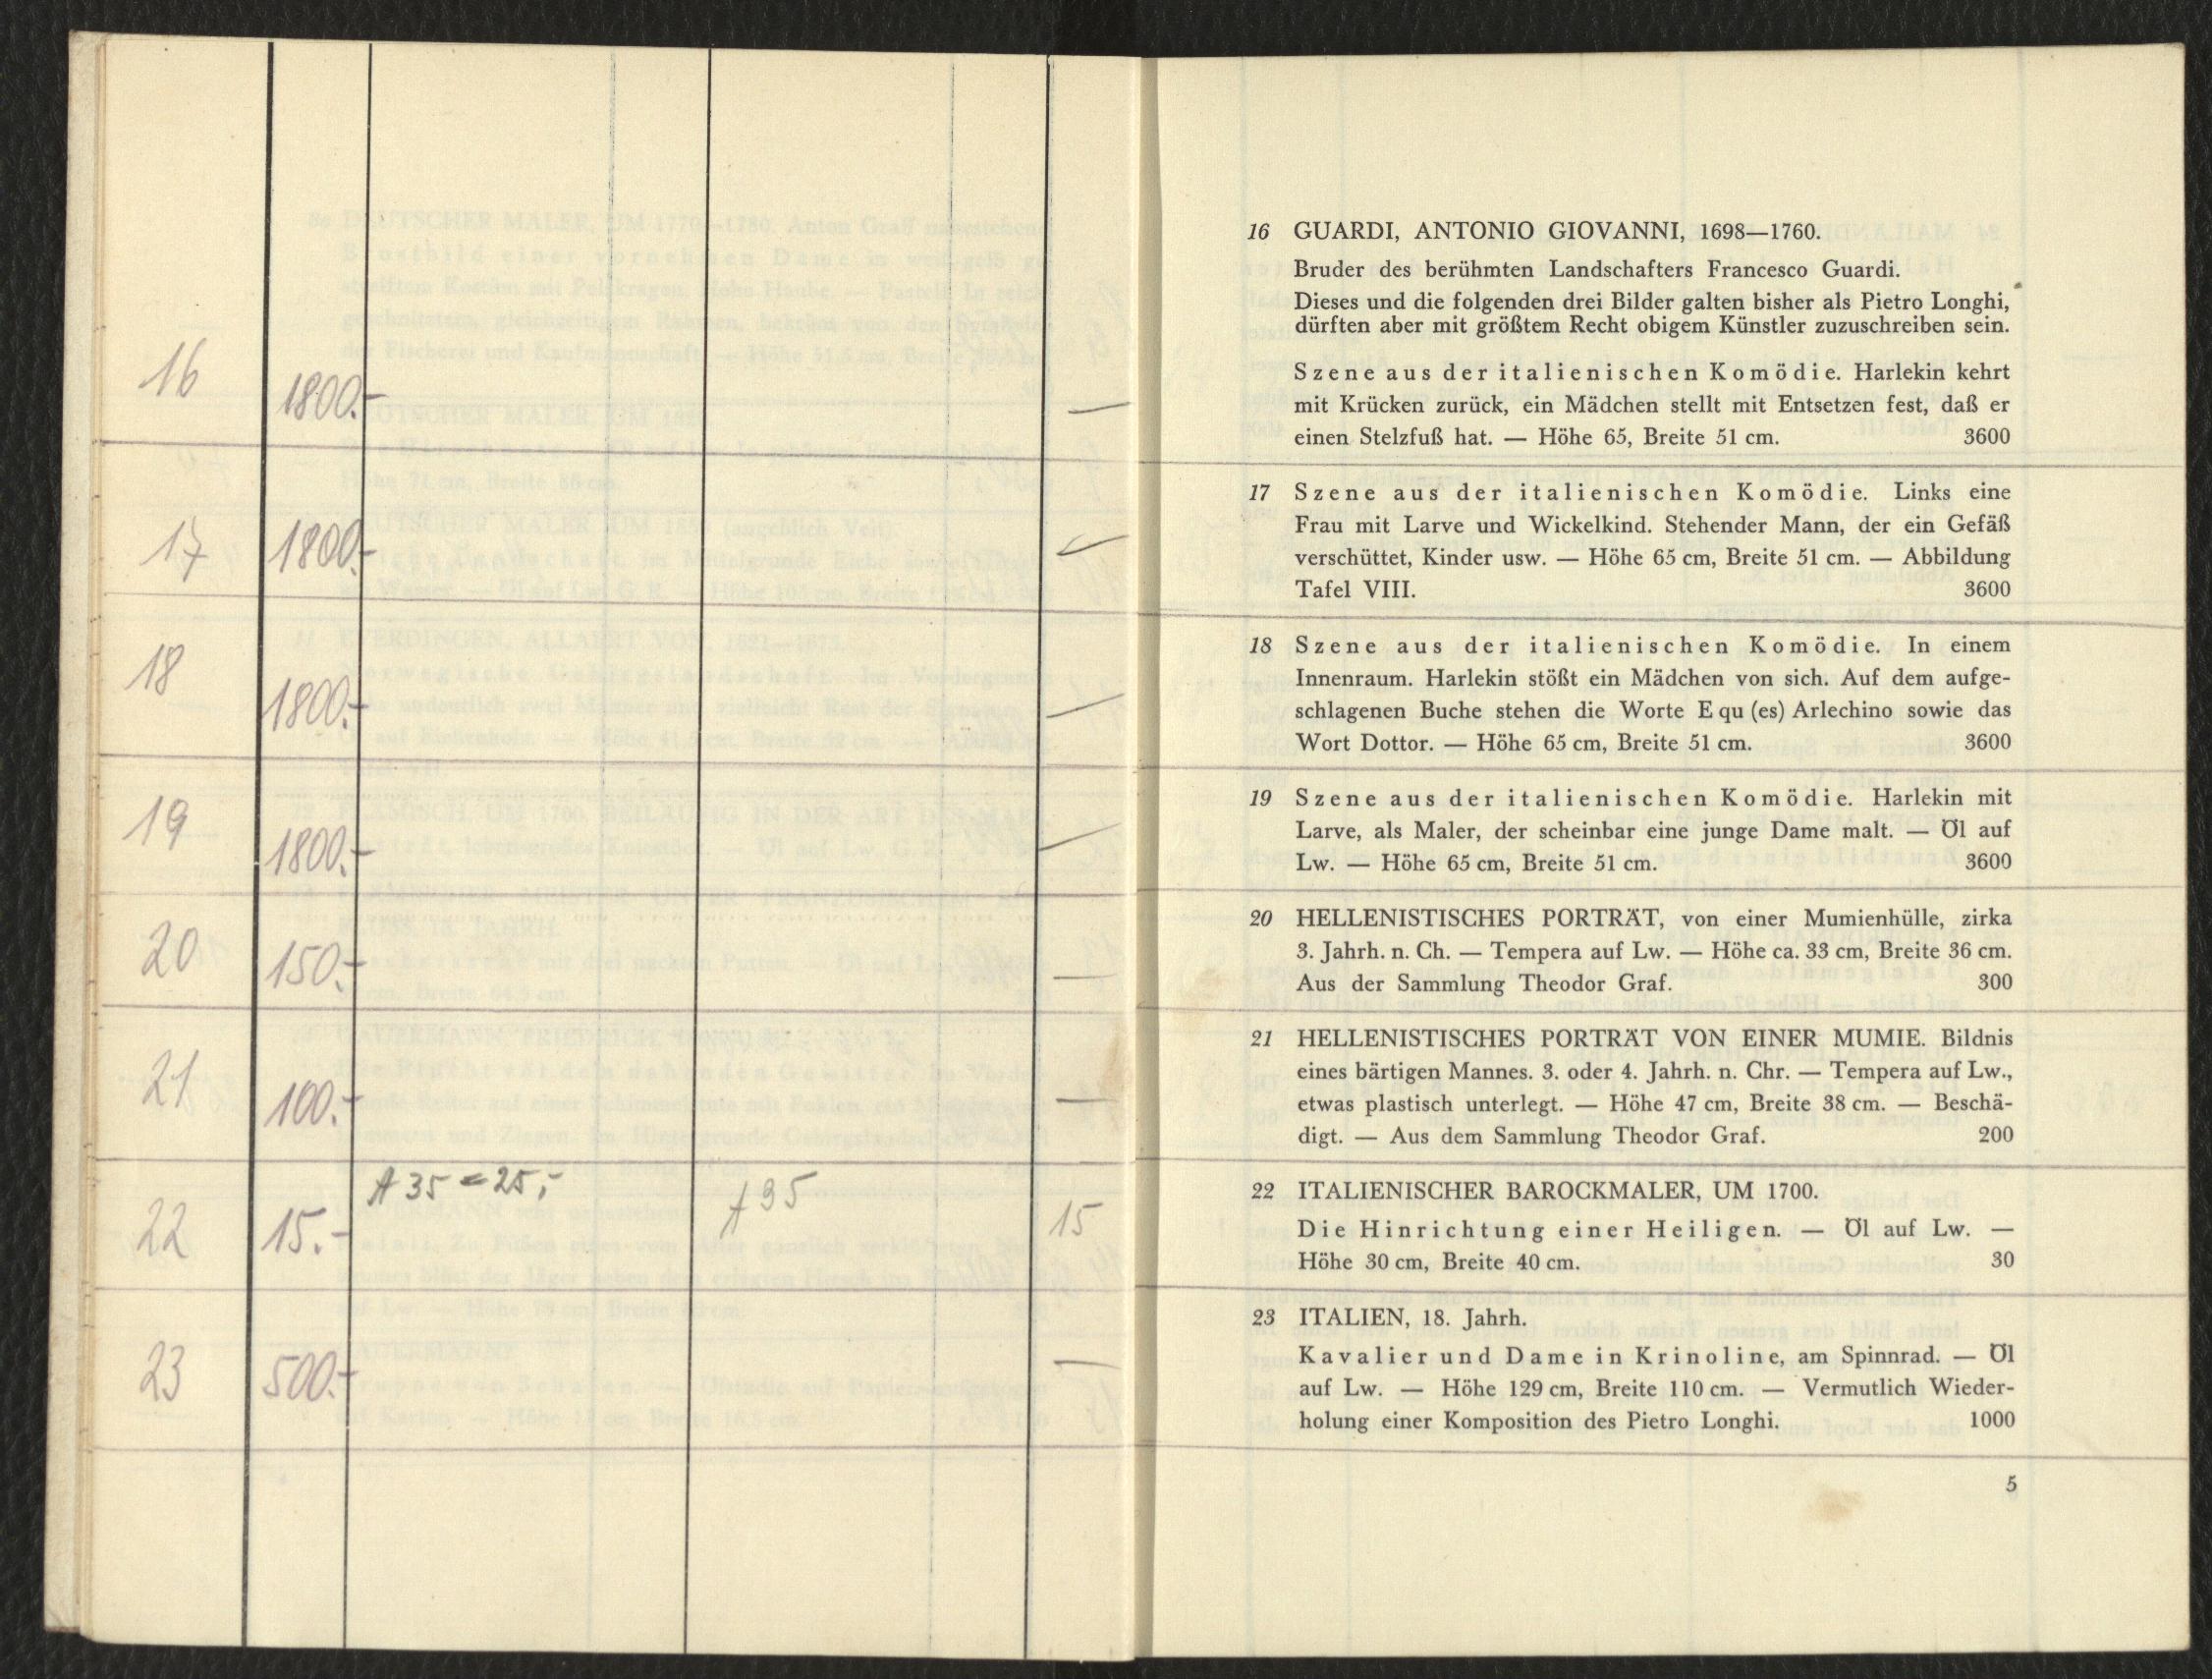 16 1800.- —
17 1800.- —
18 1800.- —
19 1800.- —
20 150.- —
21 100.- —
22 15.- A 35 = 25,- A 35 15
23 500.- —
16 GUARDI, ANTONIO GIOVANNI, 1698—1760.
Bruder des berühmten Landschafters Francesco Guardi.
Dieses und die folgenden drei Bilder galten bisher als Pietro Longhi,
dürften aber mit größtem Recht obigem Künstler zuzuschreiben sein.
Szene aus der italienischen Komödie. Harlekin kehrt
mit Krücken zurück, ein Mädchen stellt mit Entsetzen fest, daß er
einen Stelzfuß hat. — Höhe 65, Breite 51 cm. 3600
17 Szene aus der italienischen Komödie. Links eine
Frau mit Larve und Wickelkind. Stehender Mann, der ein Gefäß
verschüttet, Kinder usw. — Höhe 65 cm, Breite 51 cm. — Abbildung
Tafel VIII. 3600
18 Szene aus der italienischen Komödie. In einem
Innenraum. Harlekin stößt ein Mädchen von sich. Auf dem aufge-
schlagenen Buche stehen die Worte Equ (es) Arlechino sowie das
Wort Dottor. — Höhe 65 cm, Breite 51 cm. 3600
19 Szene aus der italienischen Komödie. Harlekin mit
Larve, als Maler, der scheinbar eine junge Dame malt. — Öl auf
Lw. — Höhe 65 cm, Breite 51 cm. 3600
20 HELLENISTISCHES PORTRÄT, von einer Mumienhülle, zirka
3. Jahrh. n. Ch. — Tempera auf Lw. — Höhe ca. 33 cm, Breite 36 cm.
Aus der Sammlung Theodor Graf. 300
21 HELLENISTISCHES PORTRÄT VON EINER MUMIE. Bildnis
eines bärtigen Mannes. 3. oder 4. Jahrh. n. Chr. — Tempera auf Lw.,
etwas plastisch unterlegt. — Höhe 47 cm, Breite 38 cm. — Beschä-
digt. — Aus dem Sammlung Theodor Graf. 200
22 ITALIENISCHER BAROCKMALER, UM 1700.
Die Hinrichtung einer Heiligen. — Öl auf Lw. —
Höhe 30 cm, Breite 40 cm. 30
23 ITALIEN, 18. Jahrh.
Kavalier und Dame in Krinoline, am Spinnrad. — Öl
auf Lw. — Höhe 129 cm, Breite 110 cm. — Vermutlich Wieder-
holung einer Komposition des Pietro Longhi. 1000
5